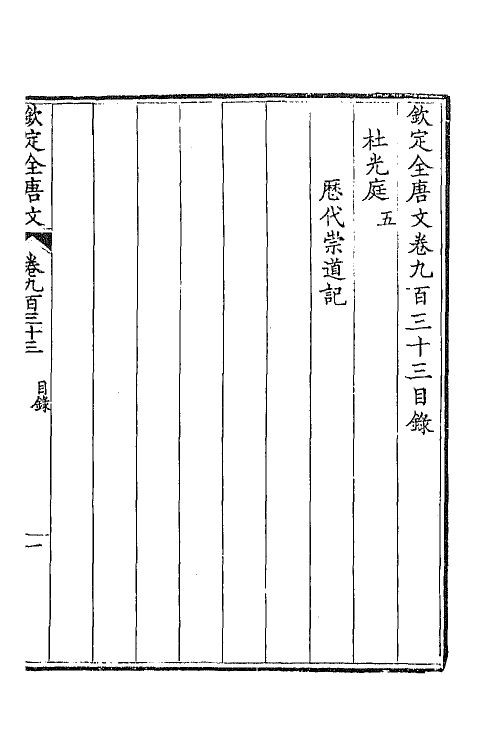 欽定全唐文卷九百三十三目錄
杜光庭五
歷代崇道記
欽定全唐文
卷九百三十三
目錄
一